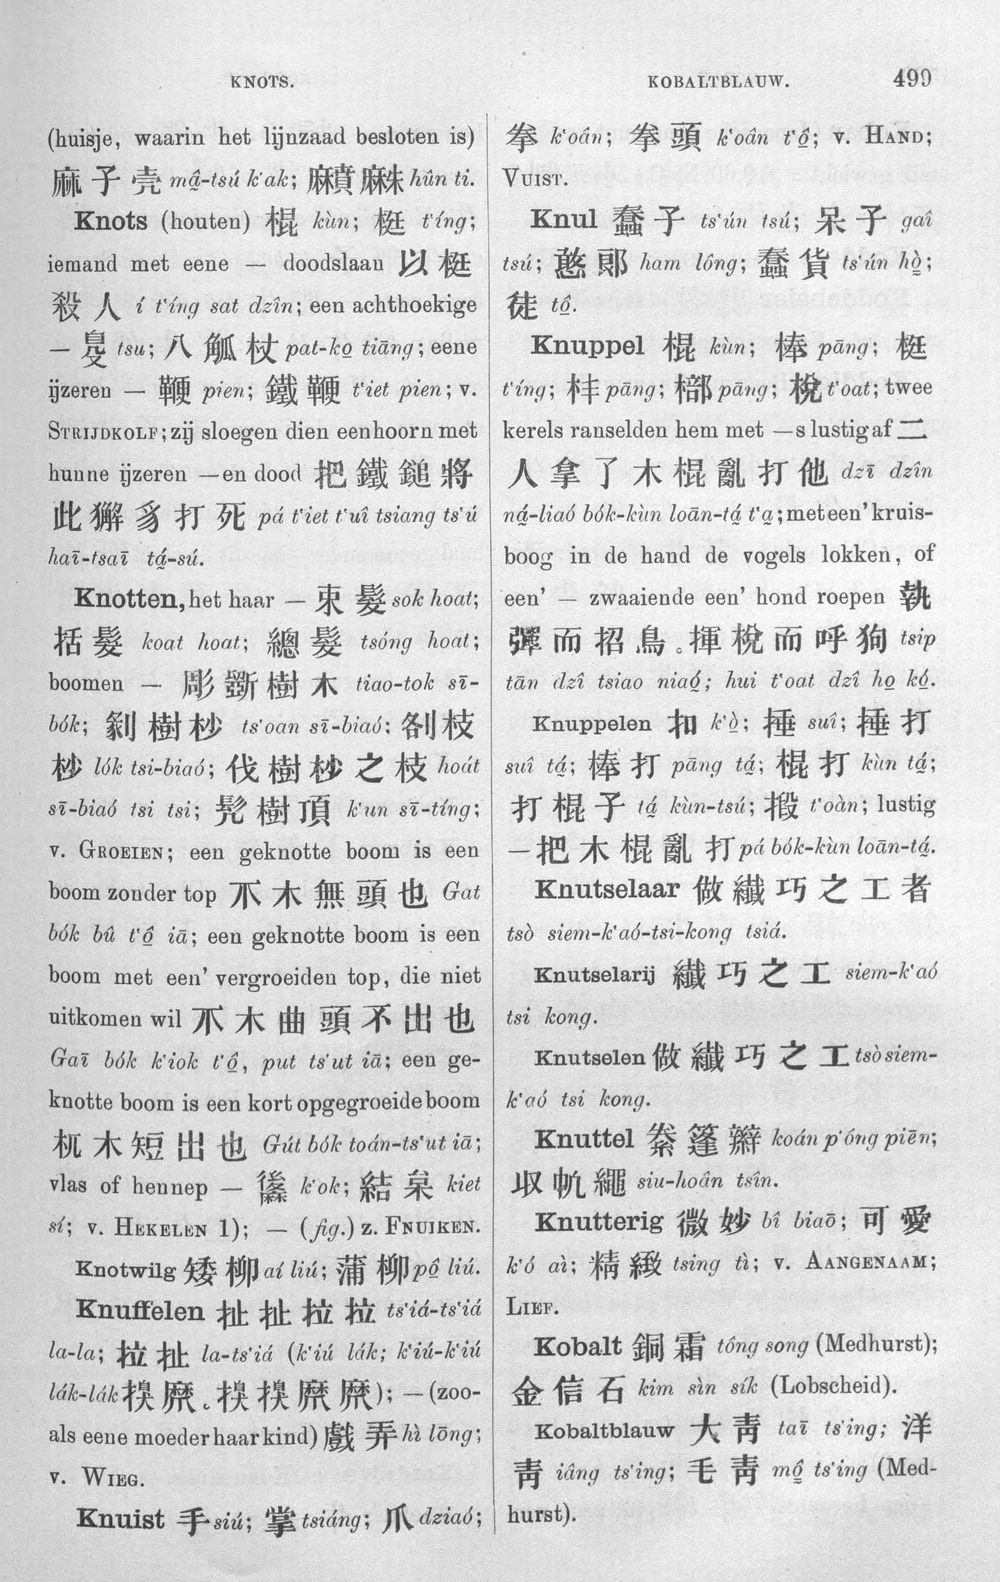 KNOTS.
KOBALTBLAUW.
499
(huisje, waarin het lijnzaad besloten is)
麻子壳 mâ-tsú k‘ak; hûn ti.
Knots (houten) 棍 kùn; 梃 t‘íng;
iemand met eene — doodslaan 以梃
殺人 í t‘íng sat dzîn; een achthoekige
— 殳 tsu; 八觚杖 pat-ko̤ tiāng; eene
ijzeren — 鞭 pien; 鐵鞭 t‘iet pien; v.
STRIJDKOLF; zij sloegen dien eenhoorn met
hunne ijzeren —en dood 把鐵鎚將
此獬豸打死 pá t‘iet t‘uî tsiang ts‘ú
haī-tsaī tá̤-sú.
Knotten, het haar — 束髮 sok hoat;
括髮 koat hoat; 總髮 tsóng hoat;
boomen — 彫斵樹木 tiao-tok sī-
bók; 剶樹杪 ts‘oan sī-biaó; 刴枝
杪 lók tsi-biaó; 伐樹杪之枝 hoát
sī-biaó tsi tsi; 髡樹頂 k‘un sī-tíng;
v. GROEIEN; een geknotte boom is een
boom zonder top 不木無頭也 Gat
bók bû t‘ô̤ iā; een geknotte boom is een
boom met een’ vergroeiden top, die niet
uitkomen wil 禾木曲頭不出也
Gaī bók k‘iok t‘ô̤, put ts‘ut iā; een ge-
knotte boom is een kort opgegroeide boom
杌木短出也 Gút bók toán-ts‘ut iā;
vlas of hennep — k‘ok; 結枲 kiet
sí; v. HEKELEN 1); — (fig.) z. FNUIKEN.
Knotwilg 矮柳 aí liú; 蒲柳 pô̤ liú.
Knuffelen 扯扯拉拉 ts‘iá-ts‘iá
la-la; 拉扯 la-ts‘iá (k‘iú lák; k‘iú-k‘iú
lák-lák); — (zoo-
als eene moeder haar kind) 戲弄 hì lōng;
v. WIEG.
Knuist 手 siú; 掌 tsiáng; 爪 dziaó;
拳 k‘oân; 拳頭 k‘oân t‘ô̤; v. HAND;
VUIST.
Knul 蠢子 ts‘ún tsú; 呆子 gaî
tsú; 憨郎 ham lông; 蠢貨 ts‘ún hò̤;
徒 tô̤.
Knuppel 棍 kùn; 棒 pāng; 梃
t‘íng; 柈 pāng; 棓 pāng; 梲 t‘oat; twee
kerels ranselden hem met —s lustig af 二
人拿了木棍亂打他 dzī dzîn
ná̤-liaó bók-kùn loān-tá̤ t‘a̤; met een’ kruis-
boog in de hand de vogels lokken, of
een’ — zwaaiende een’ hond roepen 執
彈而招鳥。揮梲而呼狗 tsip
tān dzî tsiao niaó̤; hui t‘oat dzî ho̤ kó̤.
Knuppelen 扣 k‘ò̤; 捶 suî; 捶打
suî tá̤; 棒打 pāng tá̤; 棍打 kùn tá̤;
打棍子 tá̤ kùn-tsú; 毈 t‘oàn; lustig
— 把木棍亂打 pá bók-kùn loān-tá̤.
Knutselaar 做纖巧之工者
tsò siem-k‘aó-tsi-kong tsiá.
Knutselarij 纖巧之工 siem-k‘aó
tsi kong.
Knutselen 做纖巧之工 tsò siem-
k‘aó tsi kong.
Knuttel 絭篷辮 koán p‘óng piēn;
収帆繩 siu-hoân tsîn.
Knutterig 微妙 bî biaō; 可愛
k‘ó aì; 精緻 tsing tì; v. AANGENAAM;
LIEF.
Kobalt 銅霜 tông song (Medhurst);
金信石 kim sìn sík (Lobscheid).
Kobaltblauw 大青 taī ts‘ing; 洋
青 iâng ts‘ing; 毛青 mô̤ ts‘ing (Med-
hurst).